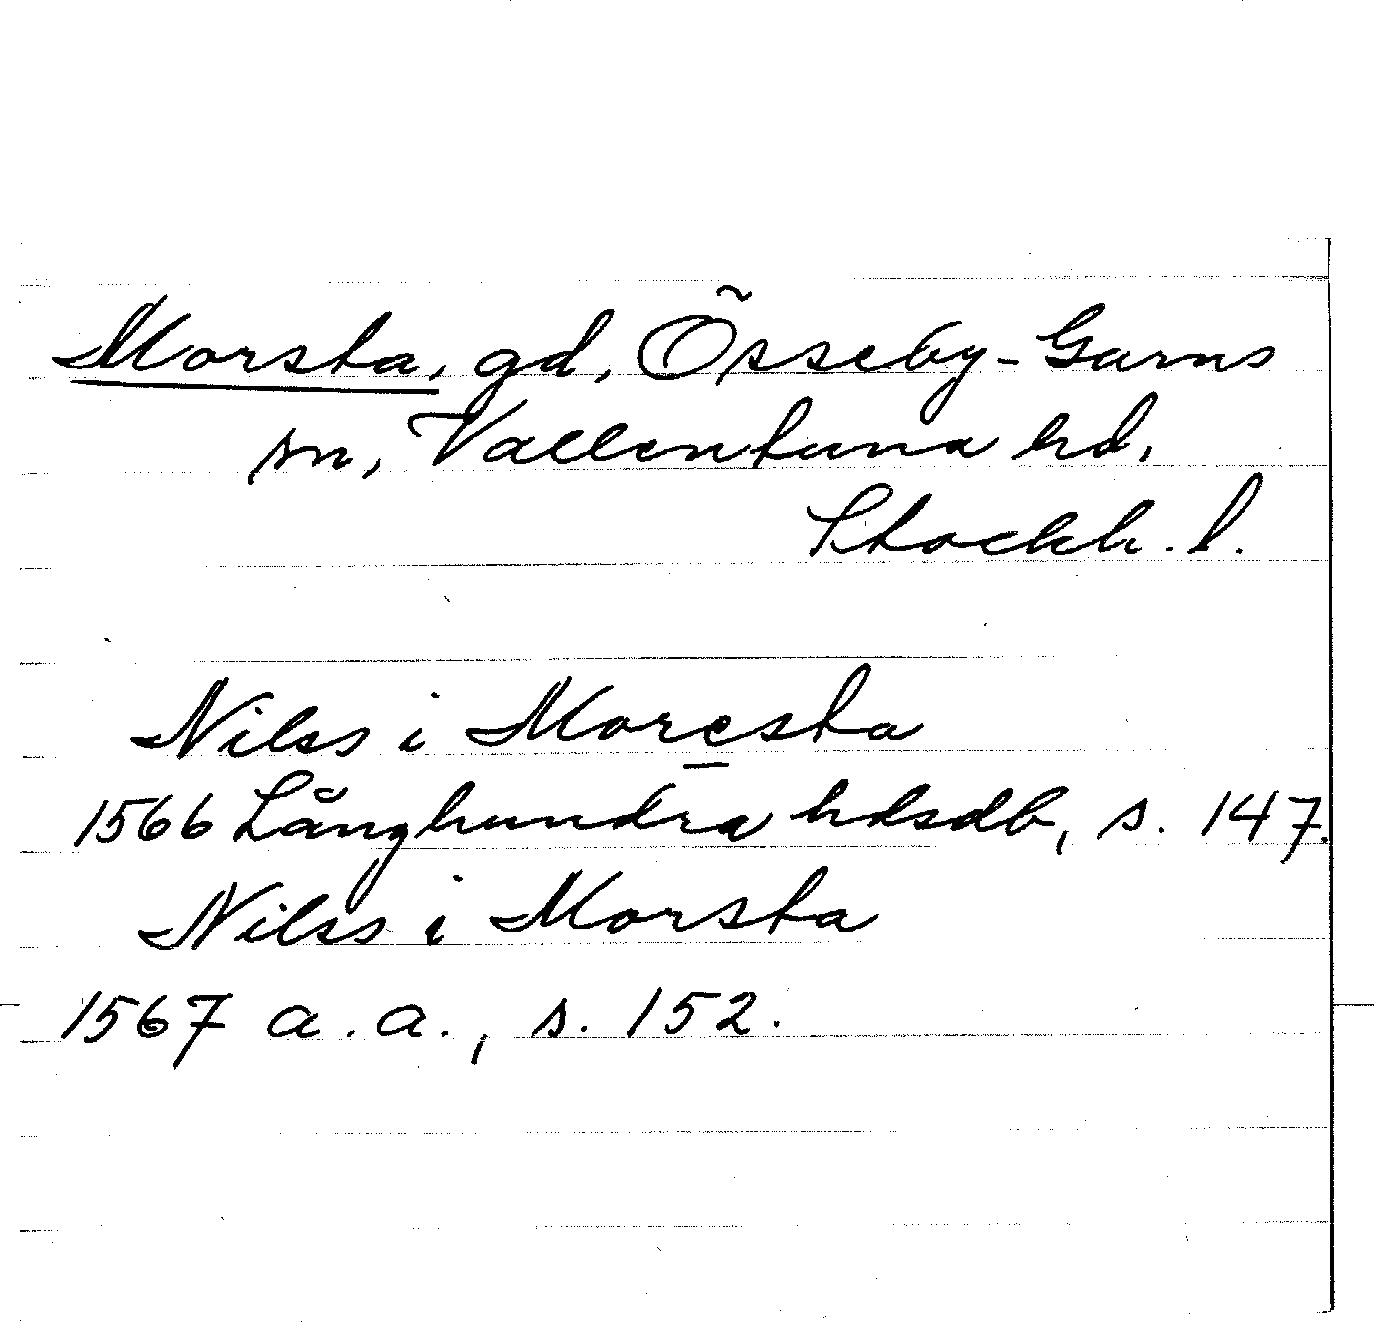 Morsta, gd, Össeby-Garns
sn, Vallentuna hd,
Stockh. l.
Nilss i Moresta
1566 Långhundra hdsdb, s. 147.
Nilss i Morsta
1567 a. a., s. 152.